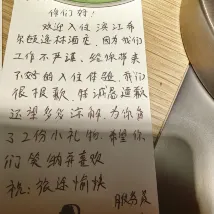 你们好！
欢迎入住滨江希
尔顿逸林酒店，因为我们
工作不严谨，给您带来
不好的入住体验，我们
很报歉，并诚恳道歉
还望多多谅解，为你准
了2份小礼物，希望你
们笑纳并喜欢
祝：旅途愉快
服务员